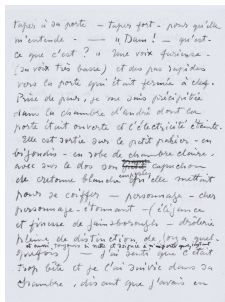 taper à sa porte – taper fort – pour qu'elle
m'entende – — " Dam ! — qu'est-
ce que c'est ? " Une voix furieuse –
(sa voix très basse) et des pas rapides
vers la porte qui était fermée à clef –
Prise de peur, je me suis précipitée
dans la chambre d'André dont la
porte était ouverte et l'électricité éteinte.
Elle est sortie sur le petit palier – en
bigoudis – en robe de chambre claire –
avec sur le dos son capuchon
de cretonne blanche qu'elle mettait
pour se coiffer – personnage – cher
personnage – étonnant – (élégance
et finesse de Gainsborough – drôlerie
pleine de distinction de Goya quel-
quefois) – j'ai senti que c'était
trop bête et je l'ai suivie dans sa
chambre, disant que j'avais eu